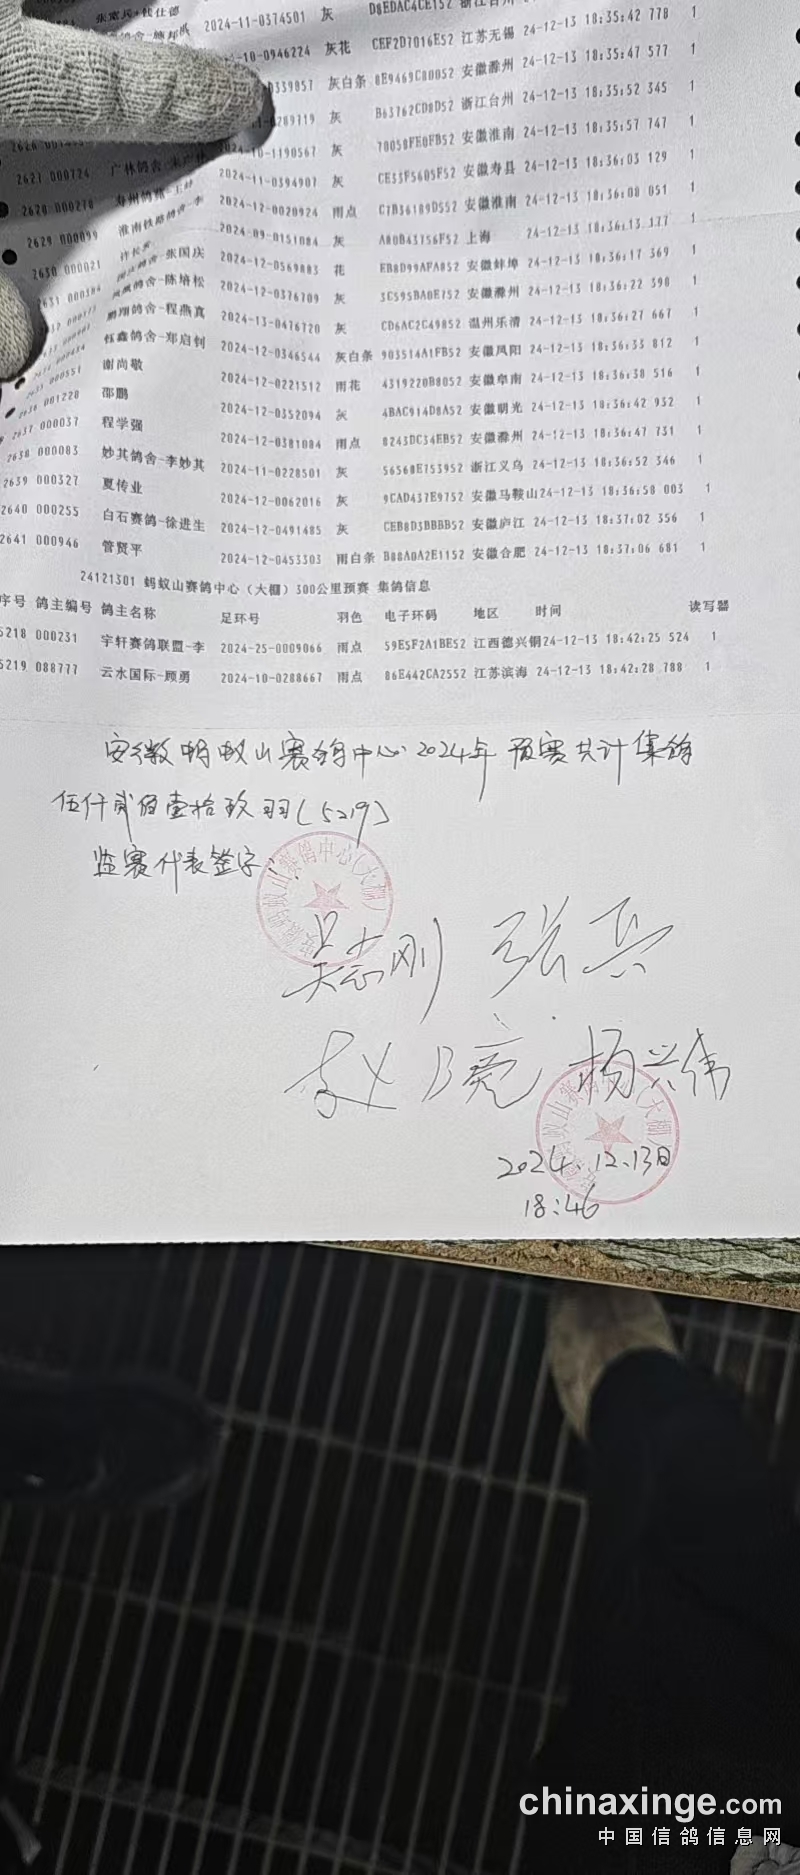 张宽兵+钱仕德 2024-11-0374501 灰 D8EDAC4CE152 浙江台州
-10-0946224 灰花 CEF2D7016E52 江苏无锡 24-12-13 18:35:42 778 1
0339857 灰白条 8E9469C80052 安徽滁州 24-12-13 18:35:47 577 1
-0289719 灰 B63762CD8D52 浙江台州 24-12-13 18:35:52 345 1
2024-10-1190567 灰 78058FE0FB52 安徽淮南 24-12-13 18:35:57 747 1
2627 000724 广林鸽舍 2024-11-0394907 灰 CE33F5605F52 安徽寿县 24-12-13 18:36:03 129 1
2628 000278 寿州鸽苑-王 2024-12-0020924 雨点 C7B36189D552 安徽淮南 24-12-13 18:36:08 051 1
2629 000099 淮南铁路鸽舍-李 2024-09-0151084 灰 A80B43756F52 上海 24-12-13 18:36:13 177 1
2630 000021 许长 2024-12-0569883 花 EB8D99AFA852 安徽蚌埠 24-12-13 18:36:17 369 1
2631 000384 鸽舍-张国庆 2024-12-0376709 灰 3C595BA0E752 安徽滁州 24-12-13 18:36:22 598 1
鸽舍-陈培松 2024-13-0476720 灰 CD6AC2C49852 温州乐清 24-12-13 18:36:27 667 1
鹏翔鸽舍-程燕真 2024-12-0346544 灰白条 903514A1FB52 安徽凤阳 24-12-13 18:36:33 812 1
2634 000434 钰鑫鸽舍-郑启钊 2024-12-0221512 雨花 4319220B8052 安徽阜南 24-12-13 18:36:38 516 1
2635 000551 谢尚敬 2024-12-0352094 灰 4BAC914D8A52 安徽明光 24-12-13 18:36:42 932 1
2636 001220 邵鹏 2024-12-0381084 雨点 8243DC34EB52 安徽滁州 24-12-13 18:36:47 731 1
2637 000037 程学强 2024-11-0228501 灰 56568E753952 浙江义乌 24-12-13 18:36:52 346 1
2638 000083 妙其鸽舍-李妙其 2024-12-0062016 灰 9CAD437E9752 安徽马鞍山24-12-13 18:36:58 003 1
2639 000327 夏传业 2024-12-0491485 灰 CEB8D3BBBB52 安徽庐江 24-12-13 18:37:02 356 1
2640 000255 白石赛鸽-徐进生 2024-12-0453303 雨白条 B88A0A2E1152 安徽合肥 24-12-13 18:37:06 681 1
2641 000946 管贤平
24121301 蚂蚁山赛鸽中心（大棚）300公里预赛 集鸽信息
序号 鸽主编号 鸽主名称 足环号 羽色 电子环码 地区 时间 读写器
5218 000231 宇轩赛鸽联盟-李 2024-25-0009066 雨点 59E5F2A1BE52 江西德兴铜24-12-13 18:42:25 524 1
5219 088777 云水国际-顾勇 2024-10-0288667 雨点 86E442CA2552 江苏滨海 24-12-13 18:42:28 788 1
安徽蚂蚁山赛鸽中心2024年预赛共计集鸽
伍仟贰佰壹拾玖羽(5219)
监赛代表签字:
安徽蚂蚁山赛鸽中心(大棚)
吴志刚 张兵
李义 杨兴伟
安徽蚂蚁山赛鸽中心(大棚)
2024.12.13日
18:46
chinaxinge.com
中国信鸽信息网